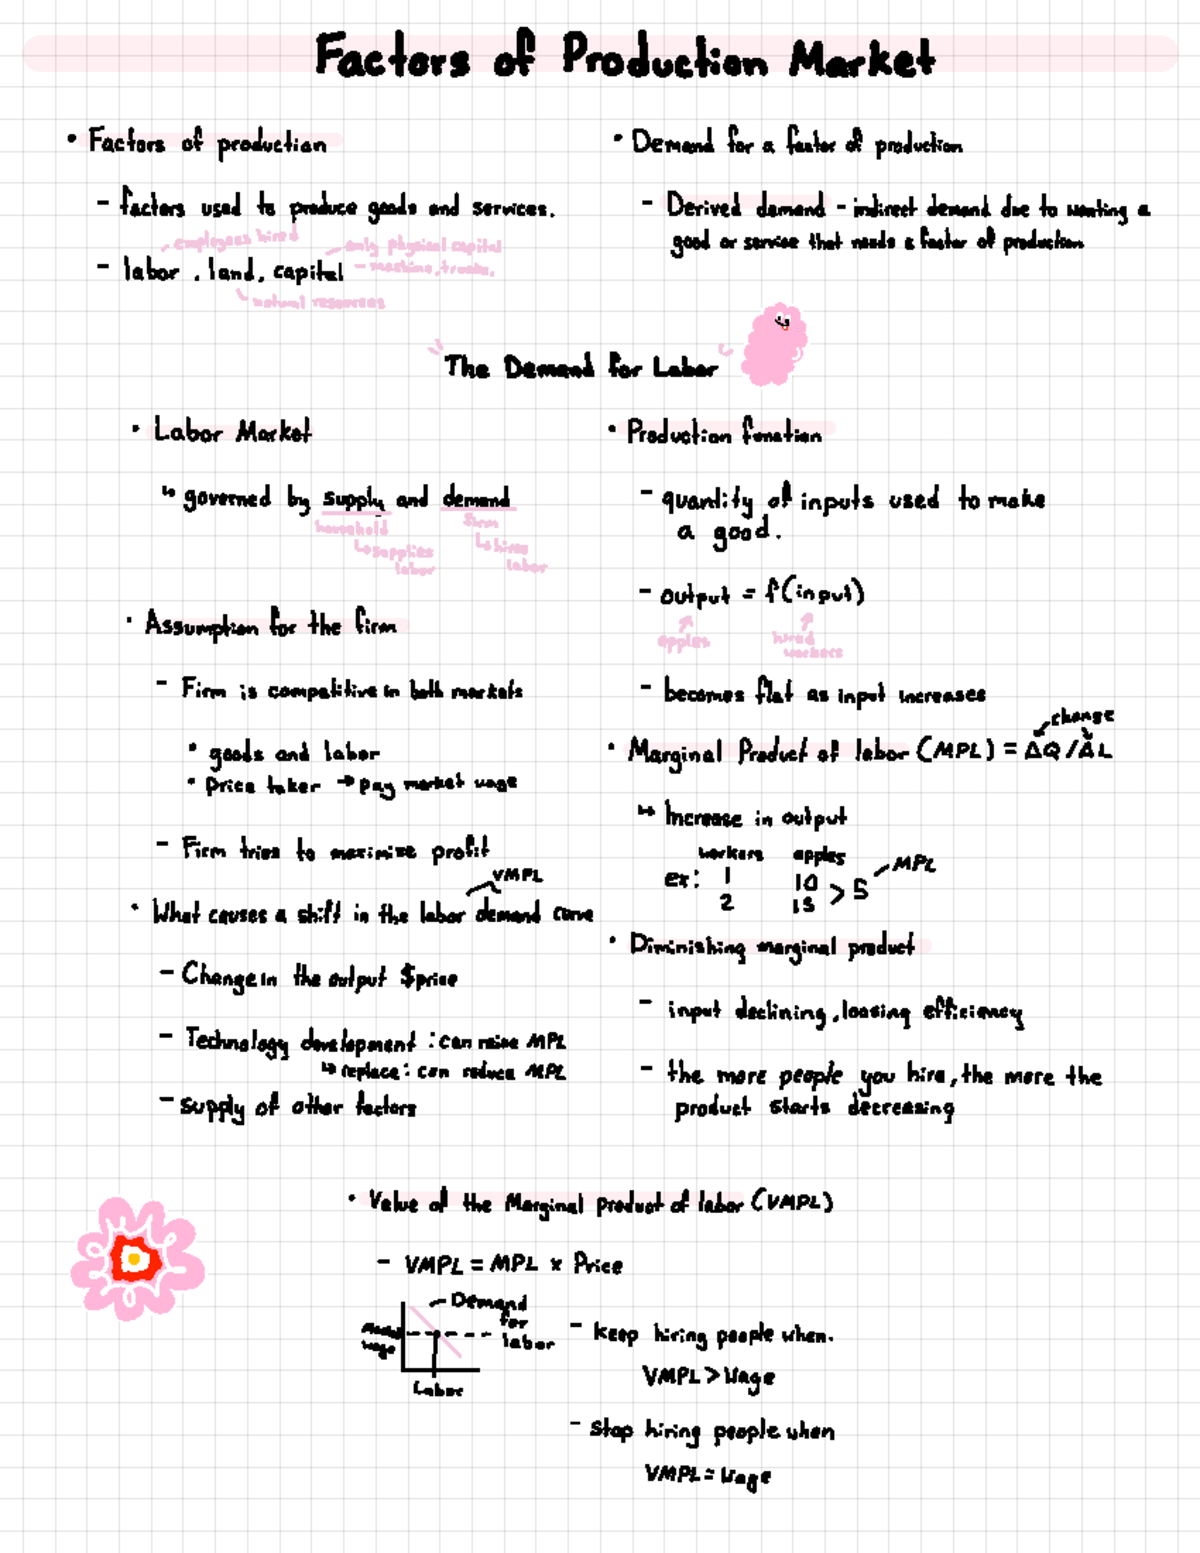 Factors of Production Market
• Factors of production
- factors used to produce goods and services.
employees hired
only physical capital
- machine, trucks,
- labor, land, capital
natural resources
• Demand for a factor of production
- Derived demand - indirect demand due to wanting a
good or service that needs a factor of production
The Demand for Labor
• Labor Market
↳ governed by supply and demand
household
↳ supplies
labor
firm
↳ hires
labor
• Assumption for the firm
- Firm is competitive in both markets
• goods and labor
• Price taker → pay market wage
- Firm tries to maximize profit
VMPL
• What causes a shift in the labor demand curve
- Change in the output $price
- Technology development : can raise MPL
↳ replace: can reduce MPL
- supply of other factors
• Production function
- quantity of inputs used to make
a good.
- output = f(input)
apples
hired
workers
- becomes flat as input increases
change
• Marginal Product of labor (MPL) = ΔQ/ΔL
↳ Increase in output
workers apples
ex: 1 10 > 5 MPL
2 15
• Diminishing marginal product
- input declining, loosing efficiency
- the more people you hire, the more the
product starts decreasing
• Value of the Marginal product of labor (VMPL)
- VMPL = MPL x Price
Demand
for
labor
Market
wage
Labor
- keep hiring people when.
VMPL > Wage
- stop hiring people when
VMPL = Wage